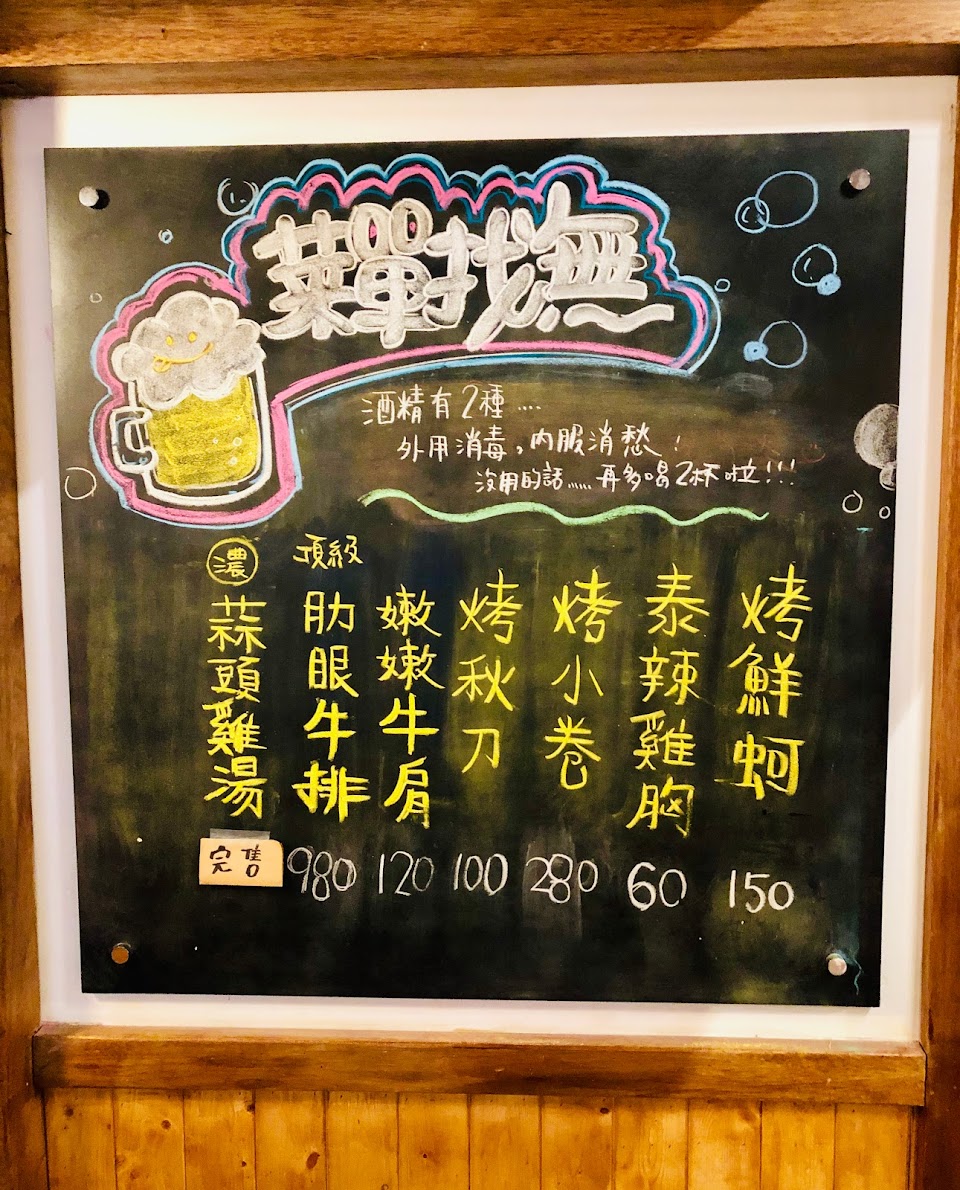 菜單找無
酒精有2種....
外用消毒，內服消愁！
沒用的話......再多喝2杯啦!!!
烤鮮蚵
150
泰辣雞胸
60
烤小卷
280
烤秋刀
100
嫩嫩牛肩
120
頂級
肋眼牛排
980
濃
蒜頭雞湯
完售